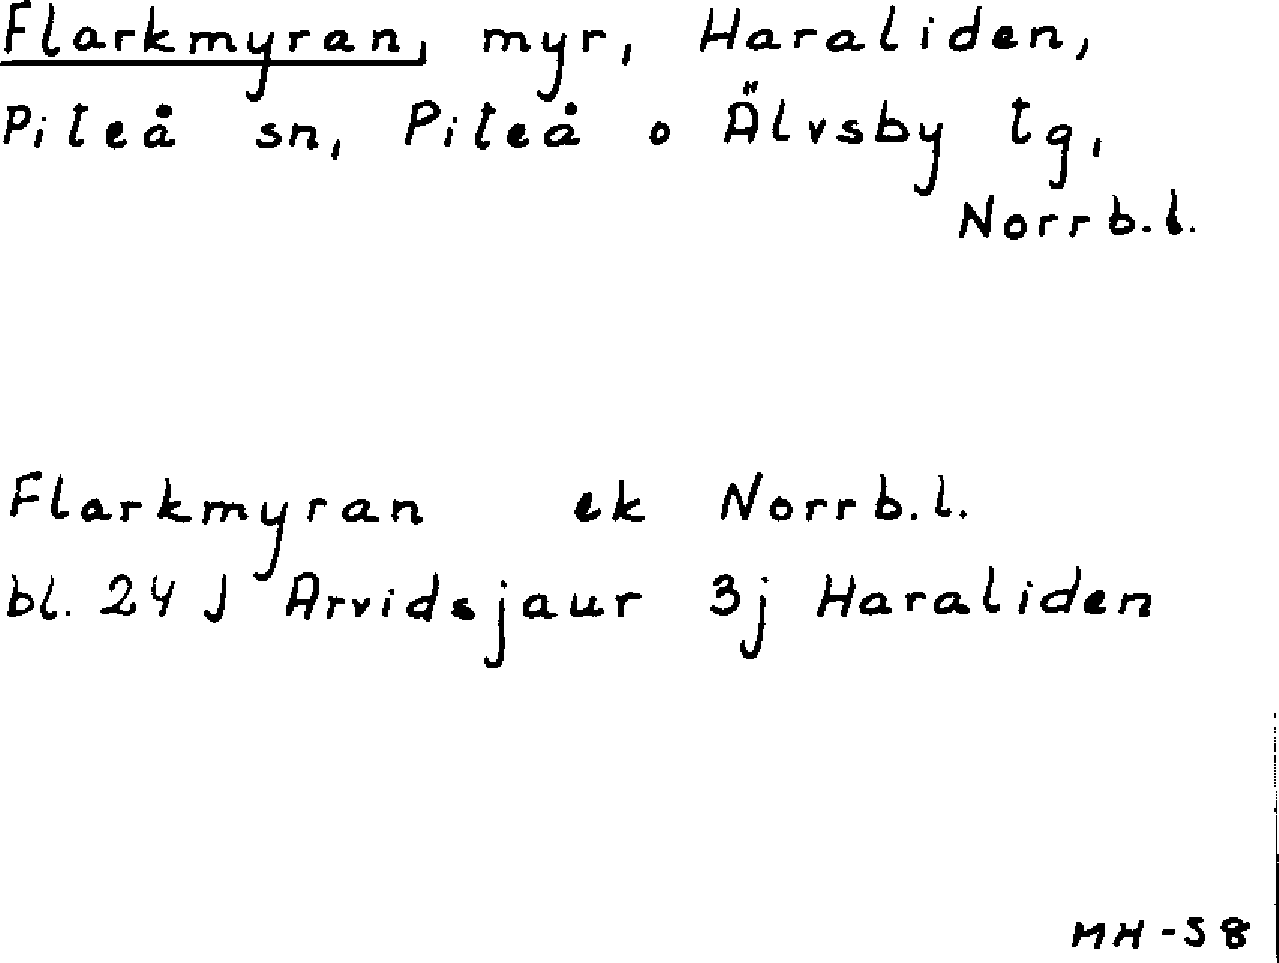 Flarkmyran, myr, Haraliden,
Piteå sn, Piteå o Älvsby tg,
Norrb.l.
Flarkmyran ek Norrb.l.
bl. 24 J Arvidsjaur 3j Haraliden
MH-58